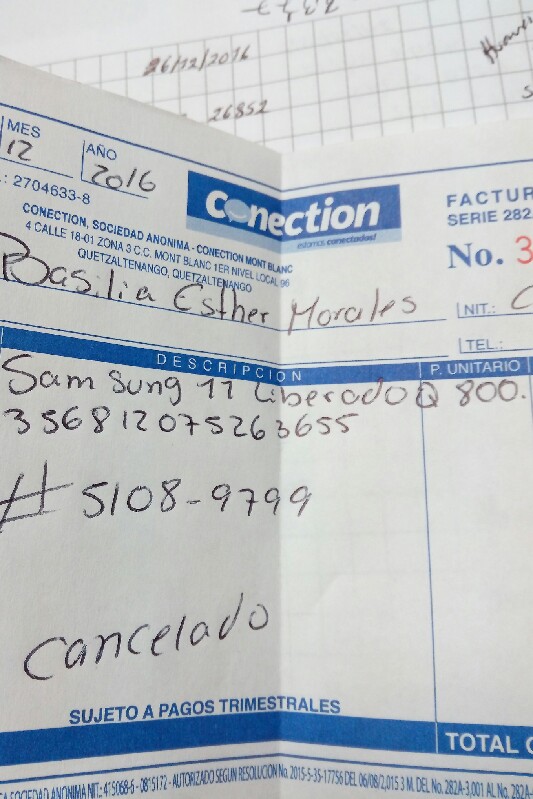 26/12/2016
26852
MES
AÑO
12
2016
.: 2704633-8
Conection
estamos conectados!
FACTUR
SERIE 282
No. 3
CONECTION, SOCIEDAD ANONIMA - CONECTION MONT BLANC
4 CALLE 18-01 ZONA 3 C.C. MONT BLANC 1ER NIVEL LOCAL 96
QUETZALTENANGO, QUETZALTENANGO
Basilia Esther Morales
NIT.: C
TEL.:
DESCRIPCION
P. UNITARIO
Samsung 11 Liberado Q 800.
356812075263655
# 5108-9799
Cancelado
SUJETO A PAGOS TRIMESTRALES
TOTAL
SOCIEDAD ANONIMA NIT.: 415068-6 - 0815172 - AUTORIZADO SEGUN RESOLUCION No. 2015-5-35-17756 DEL 06/08/2,015 3 M. DEL No. 282A-3,001 AL No. 282A-